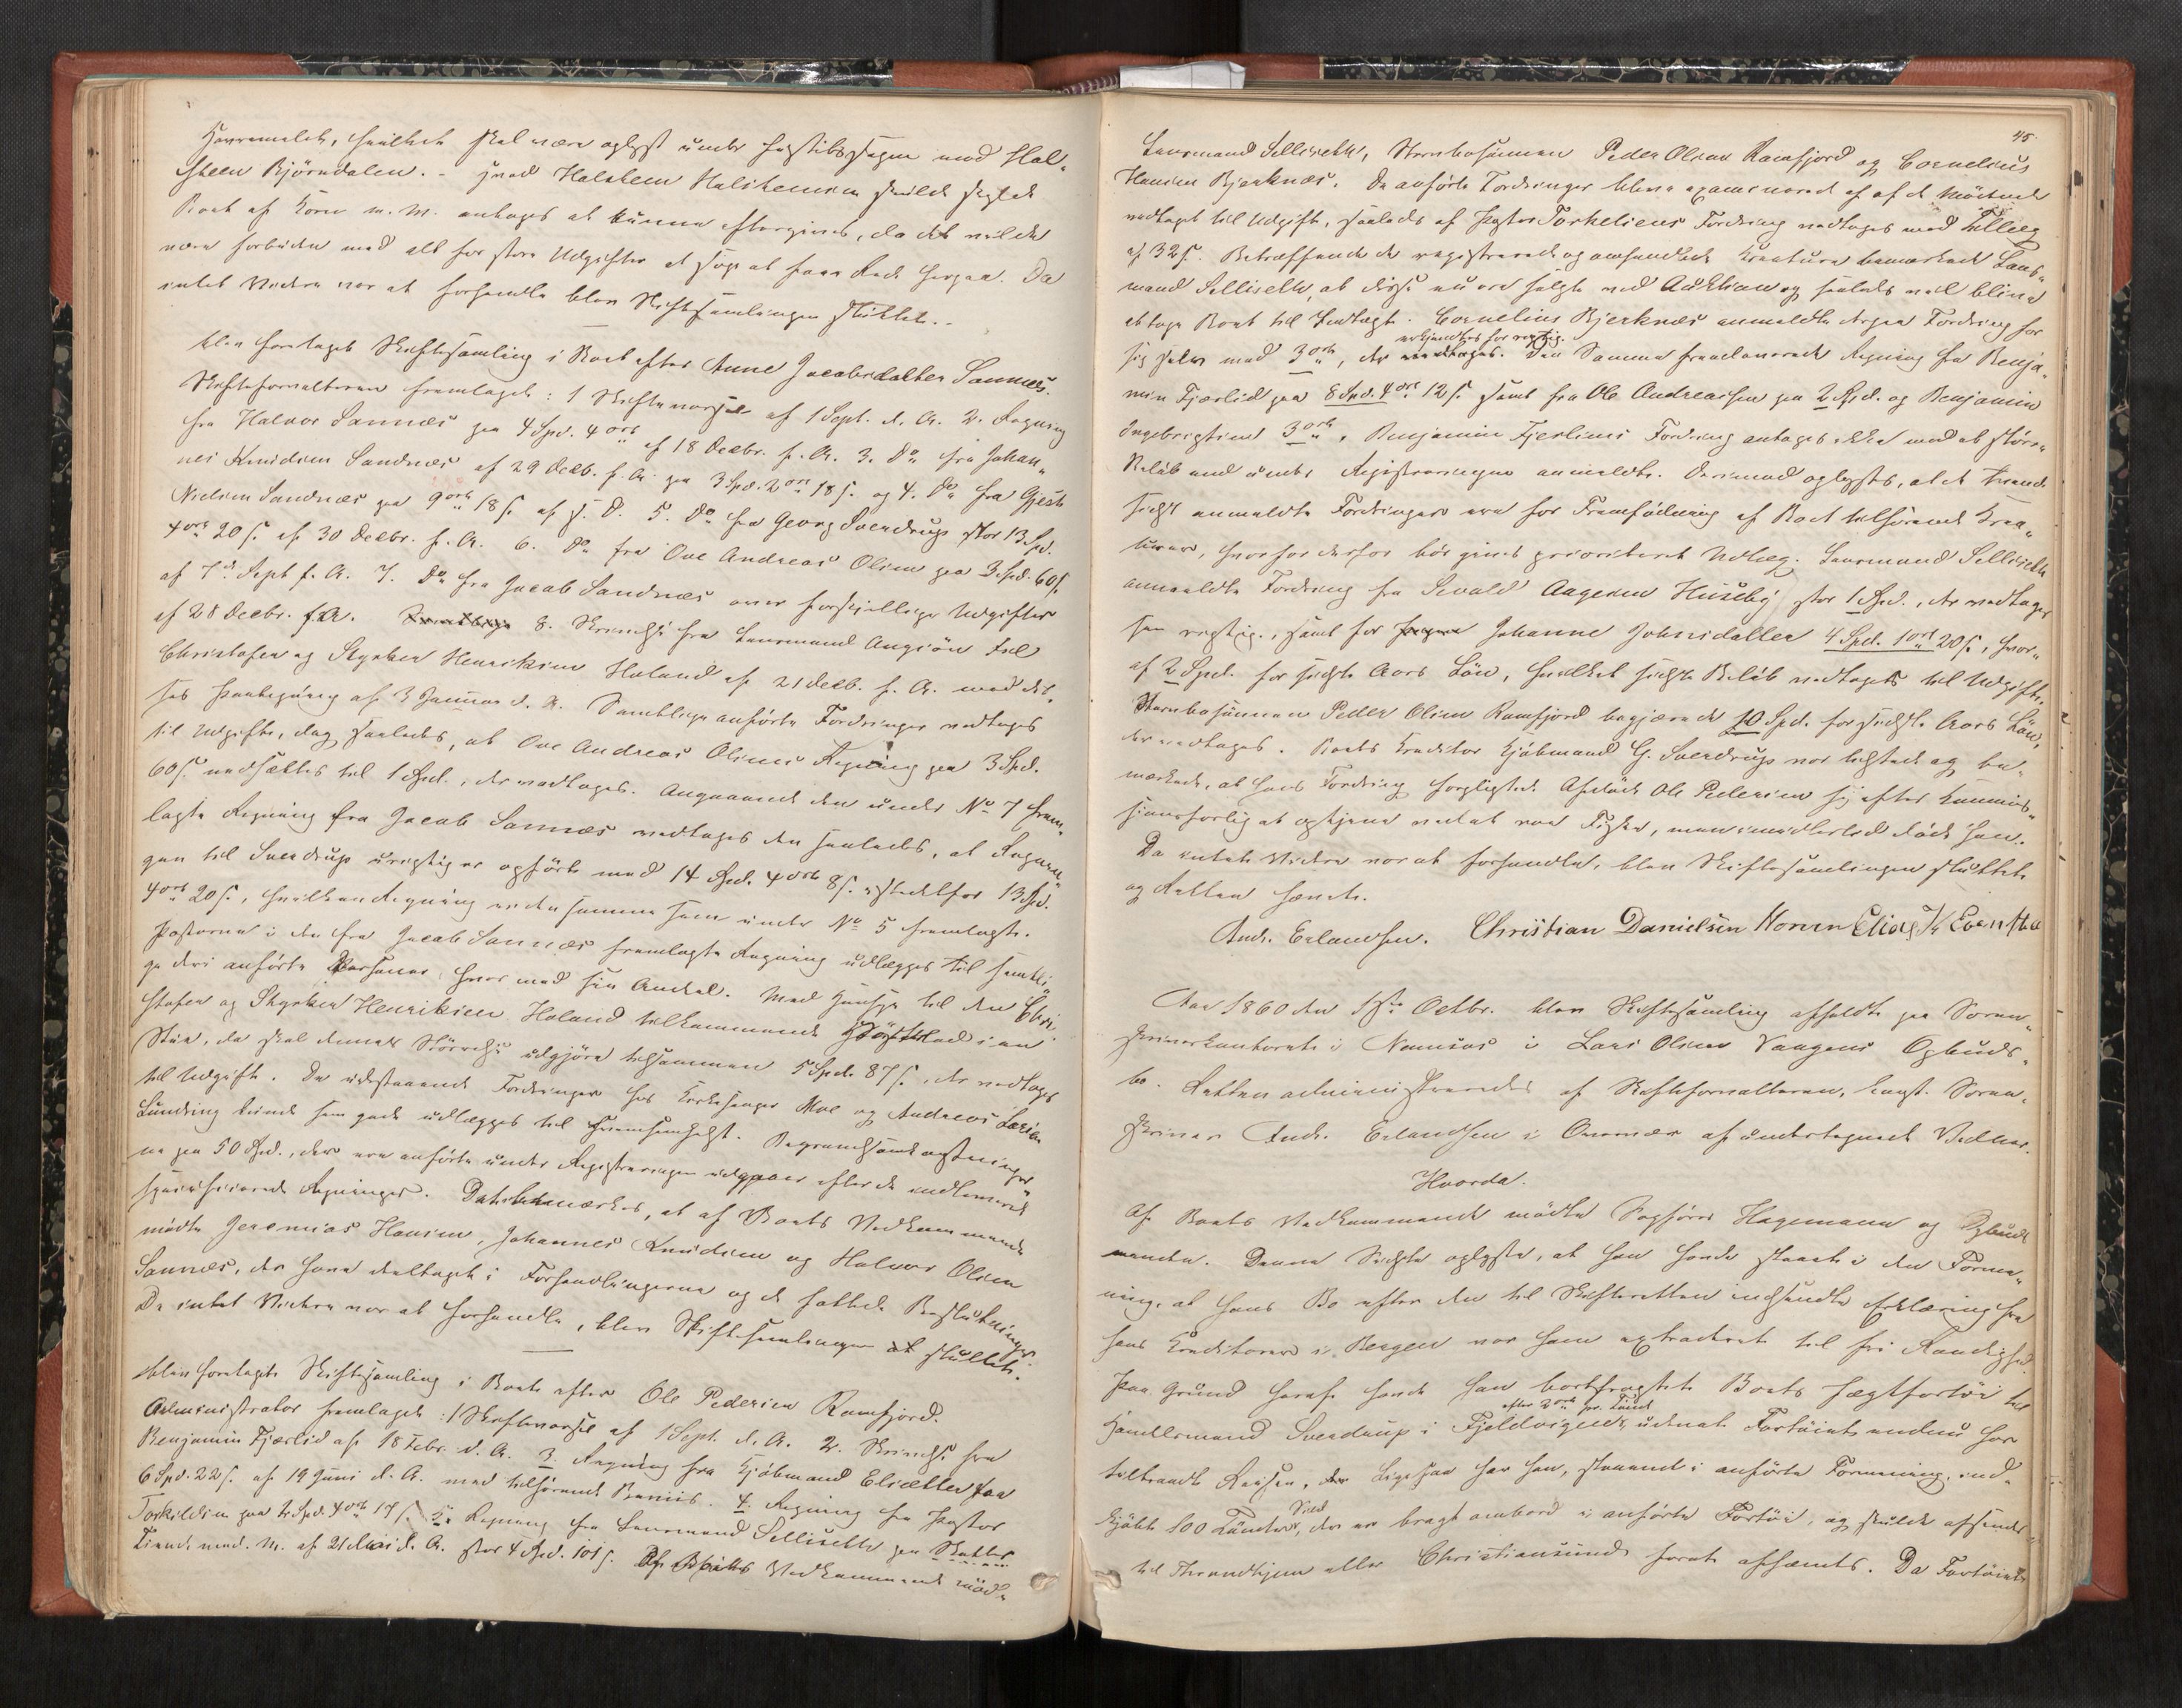 Havremalet, hvilket skal være oplyst under Justitssagen mod Hal„
steen Bjørndalen. - hvad Halsteen Halstensen skulde skyldet
Boet af Korn m. M. antages at kunne eftergives, da det vilde
være forbunden med alt for store Udgifter at søge at faae Rede herpaa. Da
intet Videre var at forhandle blev Skiftesamlingen sluttet. -
blev foretaget Skiftesamling i Boet efter Anne Jacobsdatter Sannæs.
Skifteforvalteren fremlagde: 1 Skiftevarsel af 1 Sept. d. A. 2. Regning
fra Halvor Sannæs paa 4 Spd. 4 ort af 18 Decbr. f. A. 3. Do fra Johan„
nes Knudsen Sandnæs af 29 Decb. f. A. paa 3 Spd. 2 ort 18 s. og 4. Do fra Gjert
Nielsen Sandnæs paa 9 ort 18 s. af s. D. 5. Do fra Georg Sverdrup stor 13 Spd.
4 ort 20 s. af 30 Decbr. f. A. 6. Do fra Ove Andreas Olsen paa 3 Spd. 60 s.
af 7de Sept f. A. 7. Do fra Jacob Sandnæs over forskjellige Udgifter
af 28 Decbr. f. A. 8. Skrivelse fra Lensmand Angiön til
Christofer og Styrker Henriksen Holand af 21 Decb. f. A. med dis„
ses Paategning af 3 Januar d. A. Samtlige anførte Fordringer vedtoges
til Udgift, dog saaledes, at Ove Andreas Olsens Regning paa 3 Spd.
60 s. nedsættes til 1 Spd., der vedtoges. Angaaende den under No 7 frem„
lagte Regning fra Jacob Sannæs vedtoges den saaledes, at Regnin„
gen til Sverdrup urigtig er opført med 14 Spd. 4 ort 8 s. istedetfor 13 Spd.
4 ort 20 s., hvilken Regning er den samme som under No 5 fremlagte.
Posterne i den fra Jacob Sannæs fremlagte Regning udlægges til samtli„
ge deri anførte Personer hver med sin Andel. Med Hensyn til den Chri„
stofer og Styrker Henriksen Holand tilkommende i en
Stue, da skal dennes Størrelse udgjøre tilsammen 5 Spd. 87 s., der vedtoges
til Udgift. De udestaaende Fordringer hos Kirkesanger Moe og Andreas Larsen
Lundring kunde som gode udlægges til hvemsomhelst. Begravelsesomkostninger„
ne paa 50 Spd., der ere anførte under Registreringen udgaaer efter de indleverede
specificerede Regninger. Det bemærkes, at af Boets Vedkommende
mødte Jeremias Hansen, Johannes Knudsen og Halvor Olsen
Sannæs, der have deltaget i Forhandlingerne og de fattede Beslutninger.
Da intet Videre var at forhandle, blev Skiftesamlingen sluttet.
blev foretaget Skiftesamling i Boet efter Ole Pedersen Ramfjord.
Administrator fremlagde: 1 Skiftevarsel af 1 Sept. d. A. 2. Skrivelse fra
Benjamin Fjærlid af 18 Febr. d. A. 3. Regning fra Kjøbmand Elsætter paa
6 Spd. 22 s. af 19 Juni d. A. med tilhørende Beviis. 4. Regning fra Pastor
Torkildsen paa 2 Spd. 4 ort 17 s. 5. Regning fra Lensmand Sellisetth paa Skatter
Tiende med. M. af 21 Mai d. A. stor 4 Spd. 101 s. Af Boets Vedkommende mød„
45
Lensmand Sellisetth, Stervbosønnen Peder Olsen Ramfjord og Cornelius
Hansen Bjerknæs. De anførte Fordringer bleve examinerede og af de Mødende
vedtaget til Udgift, saaledes at Pastor Torkelsens Fordring vedtoges med Tillæg
af 32 s. Betræffende de registrerede og omhandlede Kreature bemærkede Lens„
mand Sellisetth, at disse nu ere solgte ved Auktion og saaledes vil blive
at tage Boet til Indtægt. Cornelius Bjerknæs anmeldte Arpaa Fordring for
erkjendtes for rigtig.
sig selv med 3 ort, der vedtoges. Den Samme fremleverede Regning fra Benja„
min Fjærlid paa 8 Spd. 4 ort 12 s. samt fra Ole Andreassen paa 2 Spd. og Benjamin
Ingebrigtsens 3 ort. Benjamin Fjerlins Fordring antages ikke med et større
Beløb end under Registreringen anmeldte. Derimod oplystes, at de tvende
sidst anmeldte Fordringer ere for Fremfødning af Boet tilhørende Krea„
turer, hvorfor derfor bør gives prioriteret Udlæg. Lensmand Sellisetth
anmeldte Fordring fra Sivald Aagesen Huseby stor 1 Spd., der vedtoges
som rigtig, samt for Johanne Johnsdatter 4 Spd. 1 ort 20 s., hvor„
af 2 Spd. for sidste Aars Løn, hvilket sidste Beløb vedtoges til Udgift.
Stervbosønnen Peder Olsen Ramfjord begjærede 10 Spd. for sidste Aars Løn,
der vedtoges. Boets Kreditor Kjøbmand G. Sverdrup var tilstede og be„
mærkede, at hans Fordring forpligtede Afdøde Ole Pedersen sig efter Kommis„
sionsforlig at optjene ved at roe Fiske, men imidlertid døde han.
Da intet Videre var at forhandle, blev Skiftesamlingen sluttet
og Retten hævet.
Andr. Erlandsen. Christian Danielsen Horven Elias
Aar 1860 den 1ste Octbr. blev Skiftesamling afholdt paa Soren„
skriverkontoret i Namsos i Lars Olsen Vaagens Opbuds„
bo. Retten administreredes af Skifteforvalteren, const. Soren„
skriver Andr. Erlandsen i Overvær af undertegnede Vidner.
Hvorda.
Af Boets Vedkommende mødte Sagfører Hagemann og Opbuds
manden. Denne Sidste oplyste, at han havde staaet i den Forme„
ning, at hans Bo efter den til Skifteretten indsendte Erklæring fra
hans Kreditorer i Bergen var ham extraderet til fri Raadighed.
Paa Grund heraf havde han bortfragtet Boets Jægtfartøi til
efter 2 ort pr. Tønde
Handelsmand Sverdrup i Fjeldvigen, uden at Fartøiet endnu har
tiltraadt Reisen, Ligesaa har han, staaende i anførte Formening, ind„
Sild
kjøbt 100 Tønder, der er bragt ombord i anførte Fartøi, og skulde afsendes
til Throndhjem eller Christiansund for at afsættes. Da Fartøiet